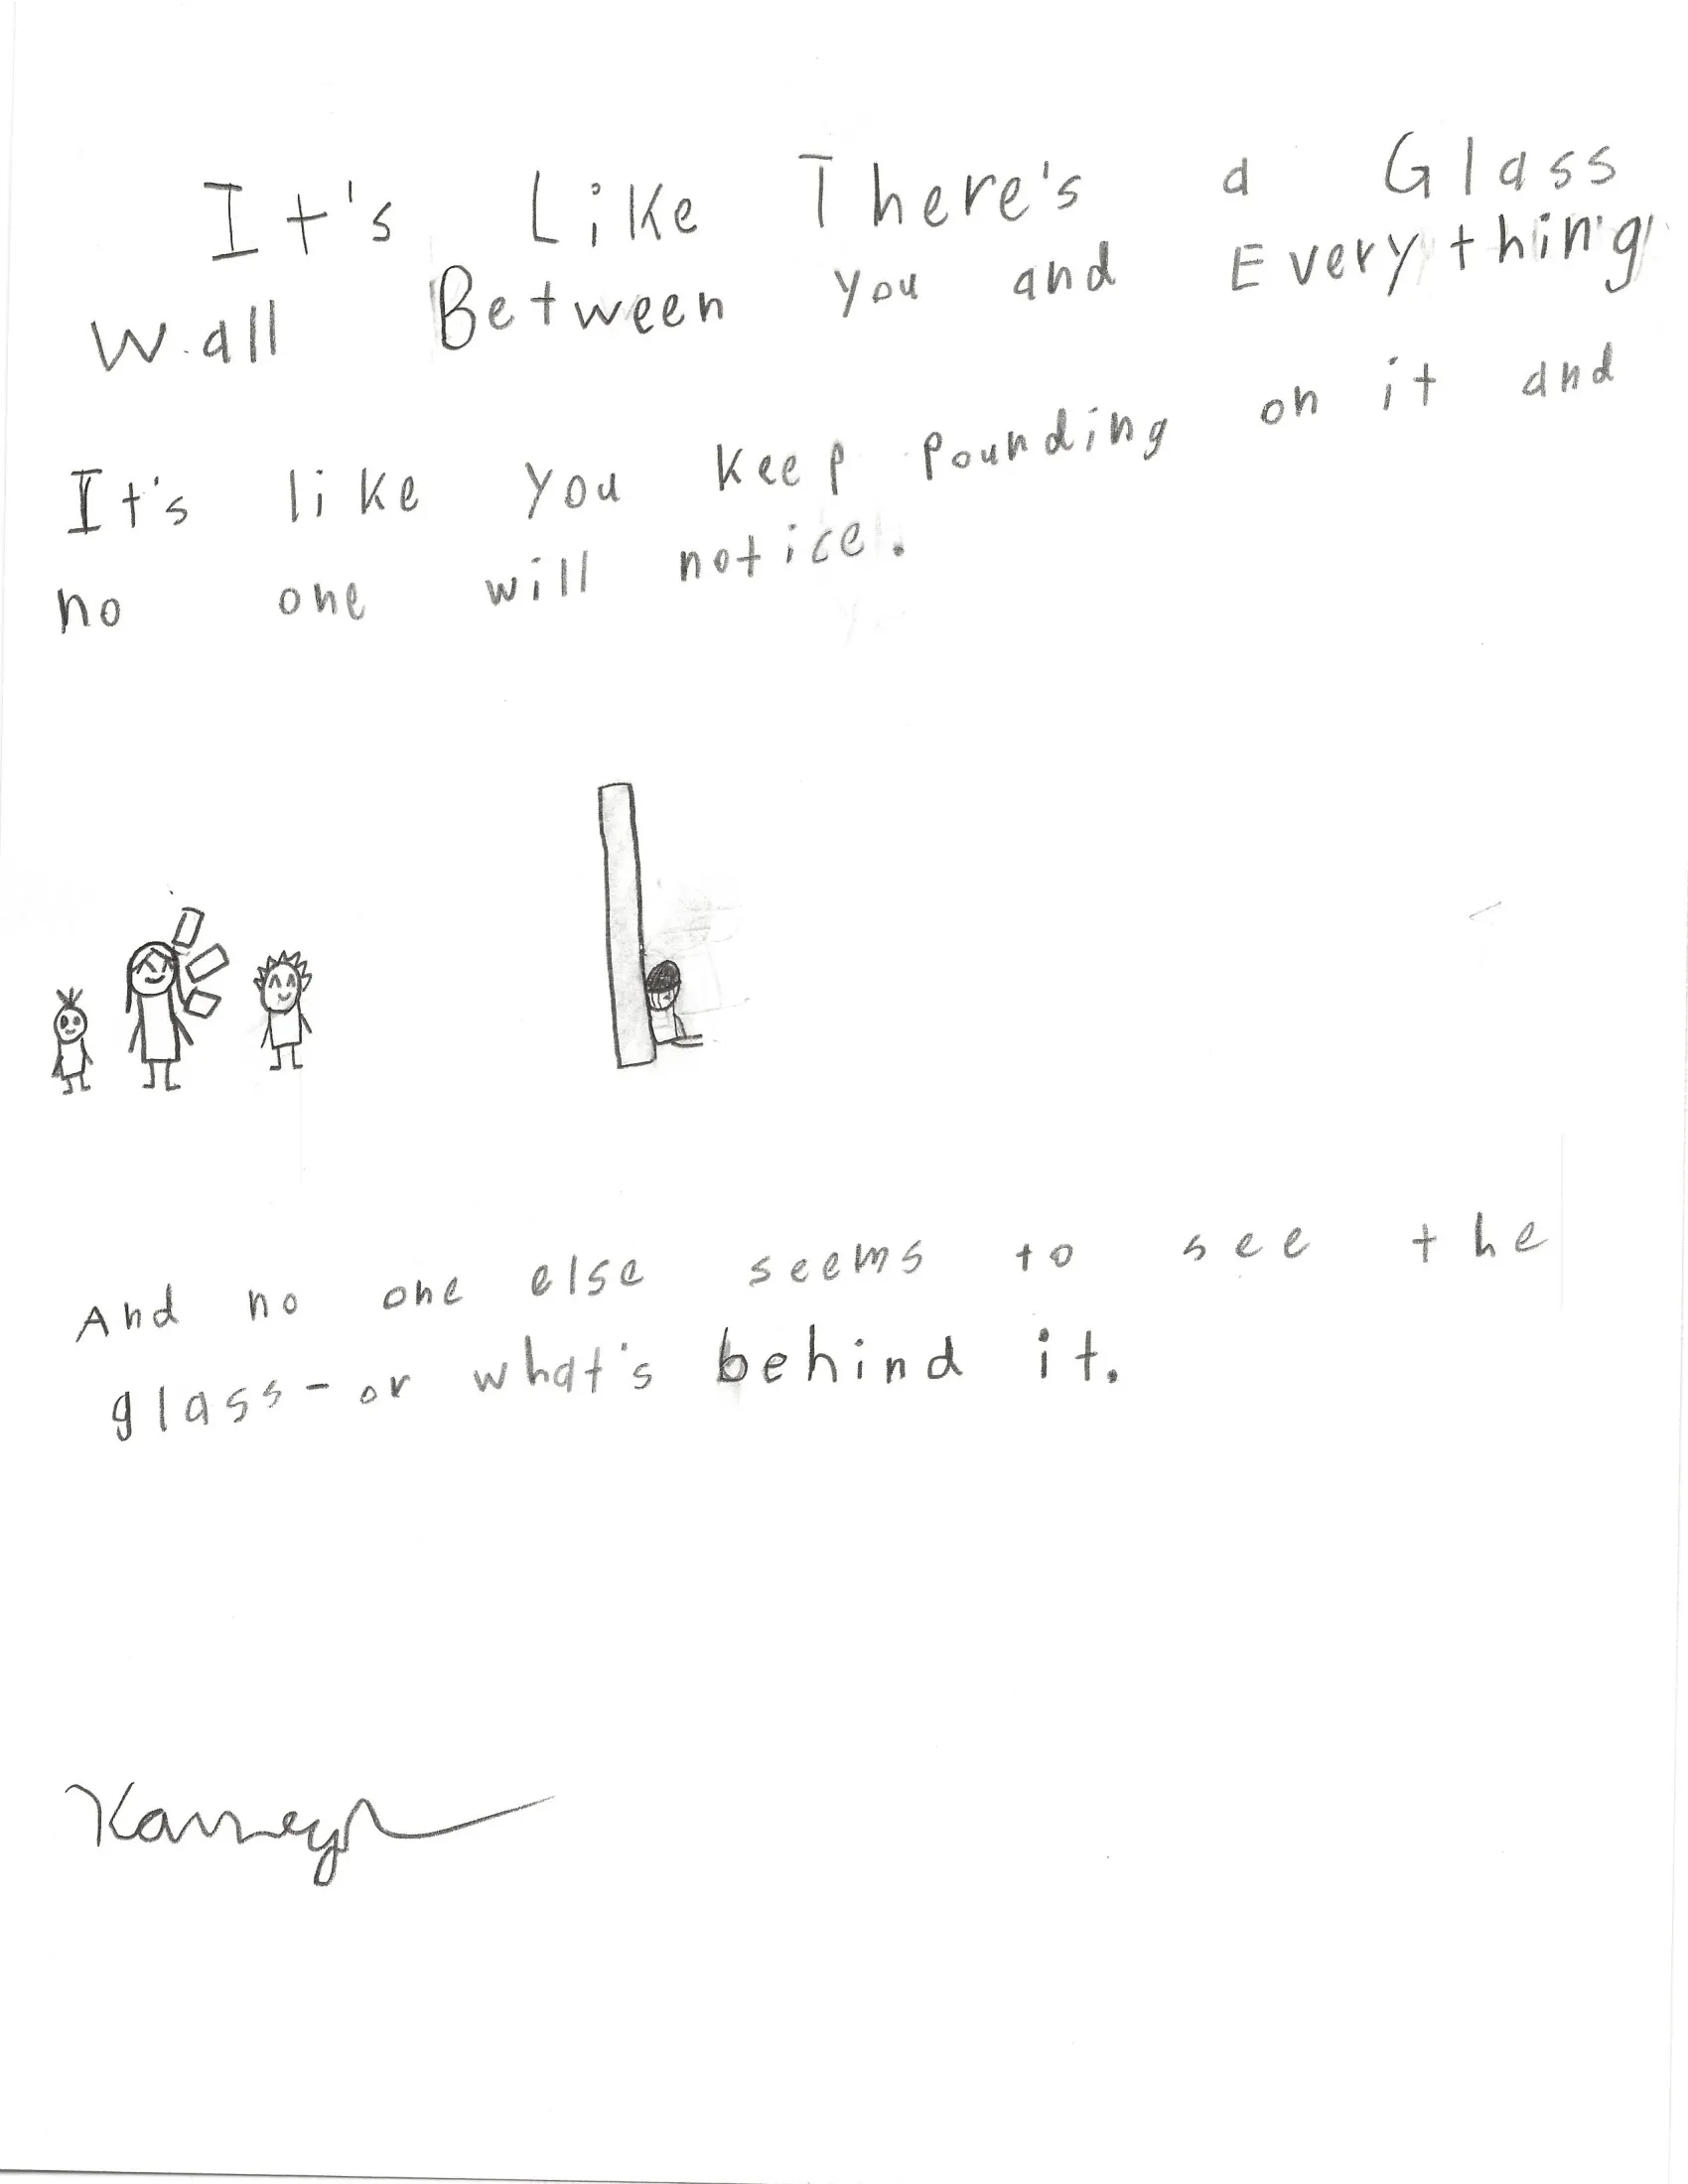 It's Like There's a Glass
Wall Between You and Everything
It's like you keep pounding on it and
no one will notice.
And no one else seems to see the
glass-or what's behind it.